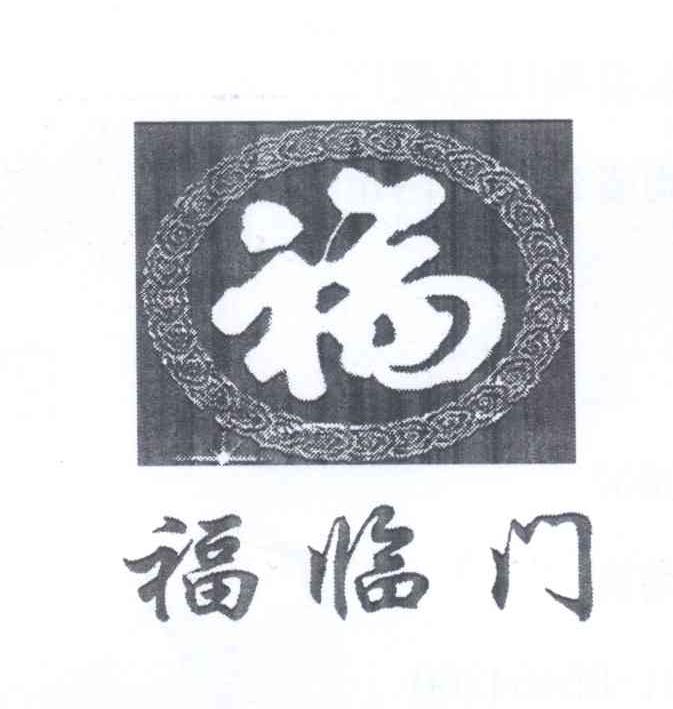 福
福临门